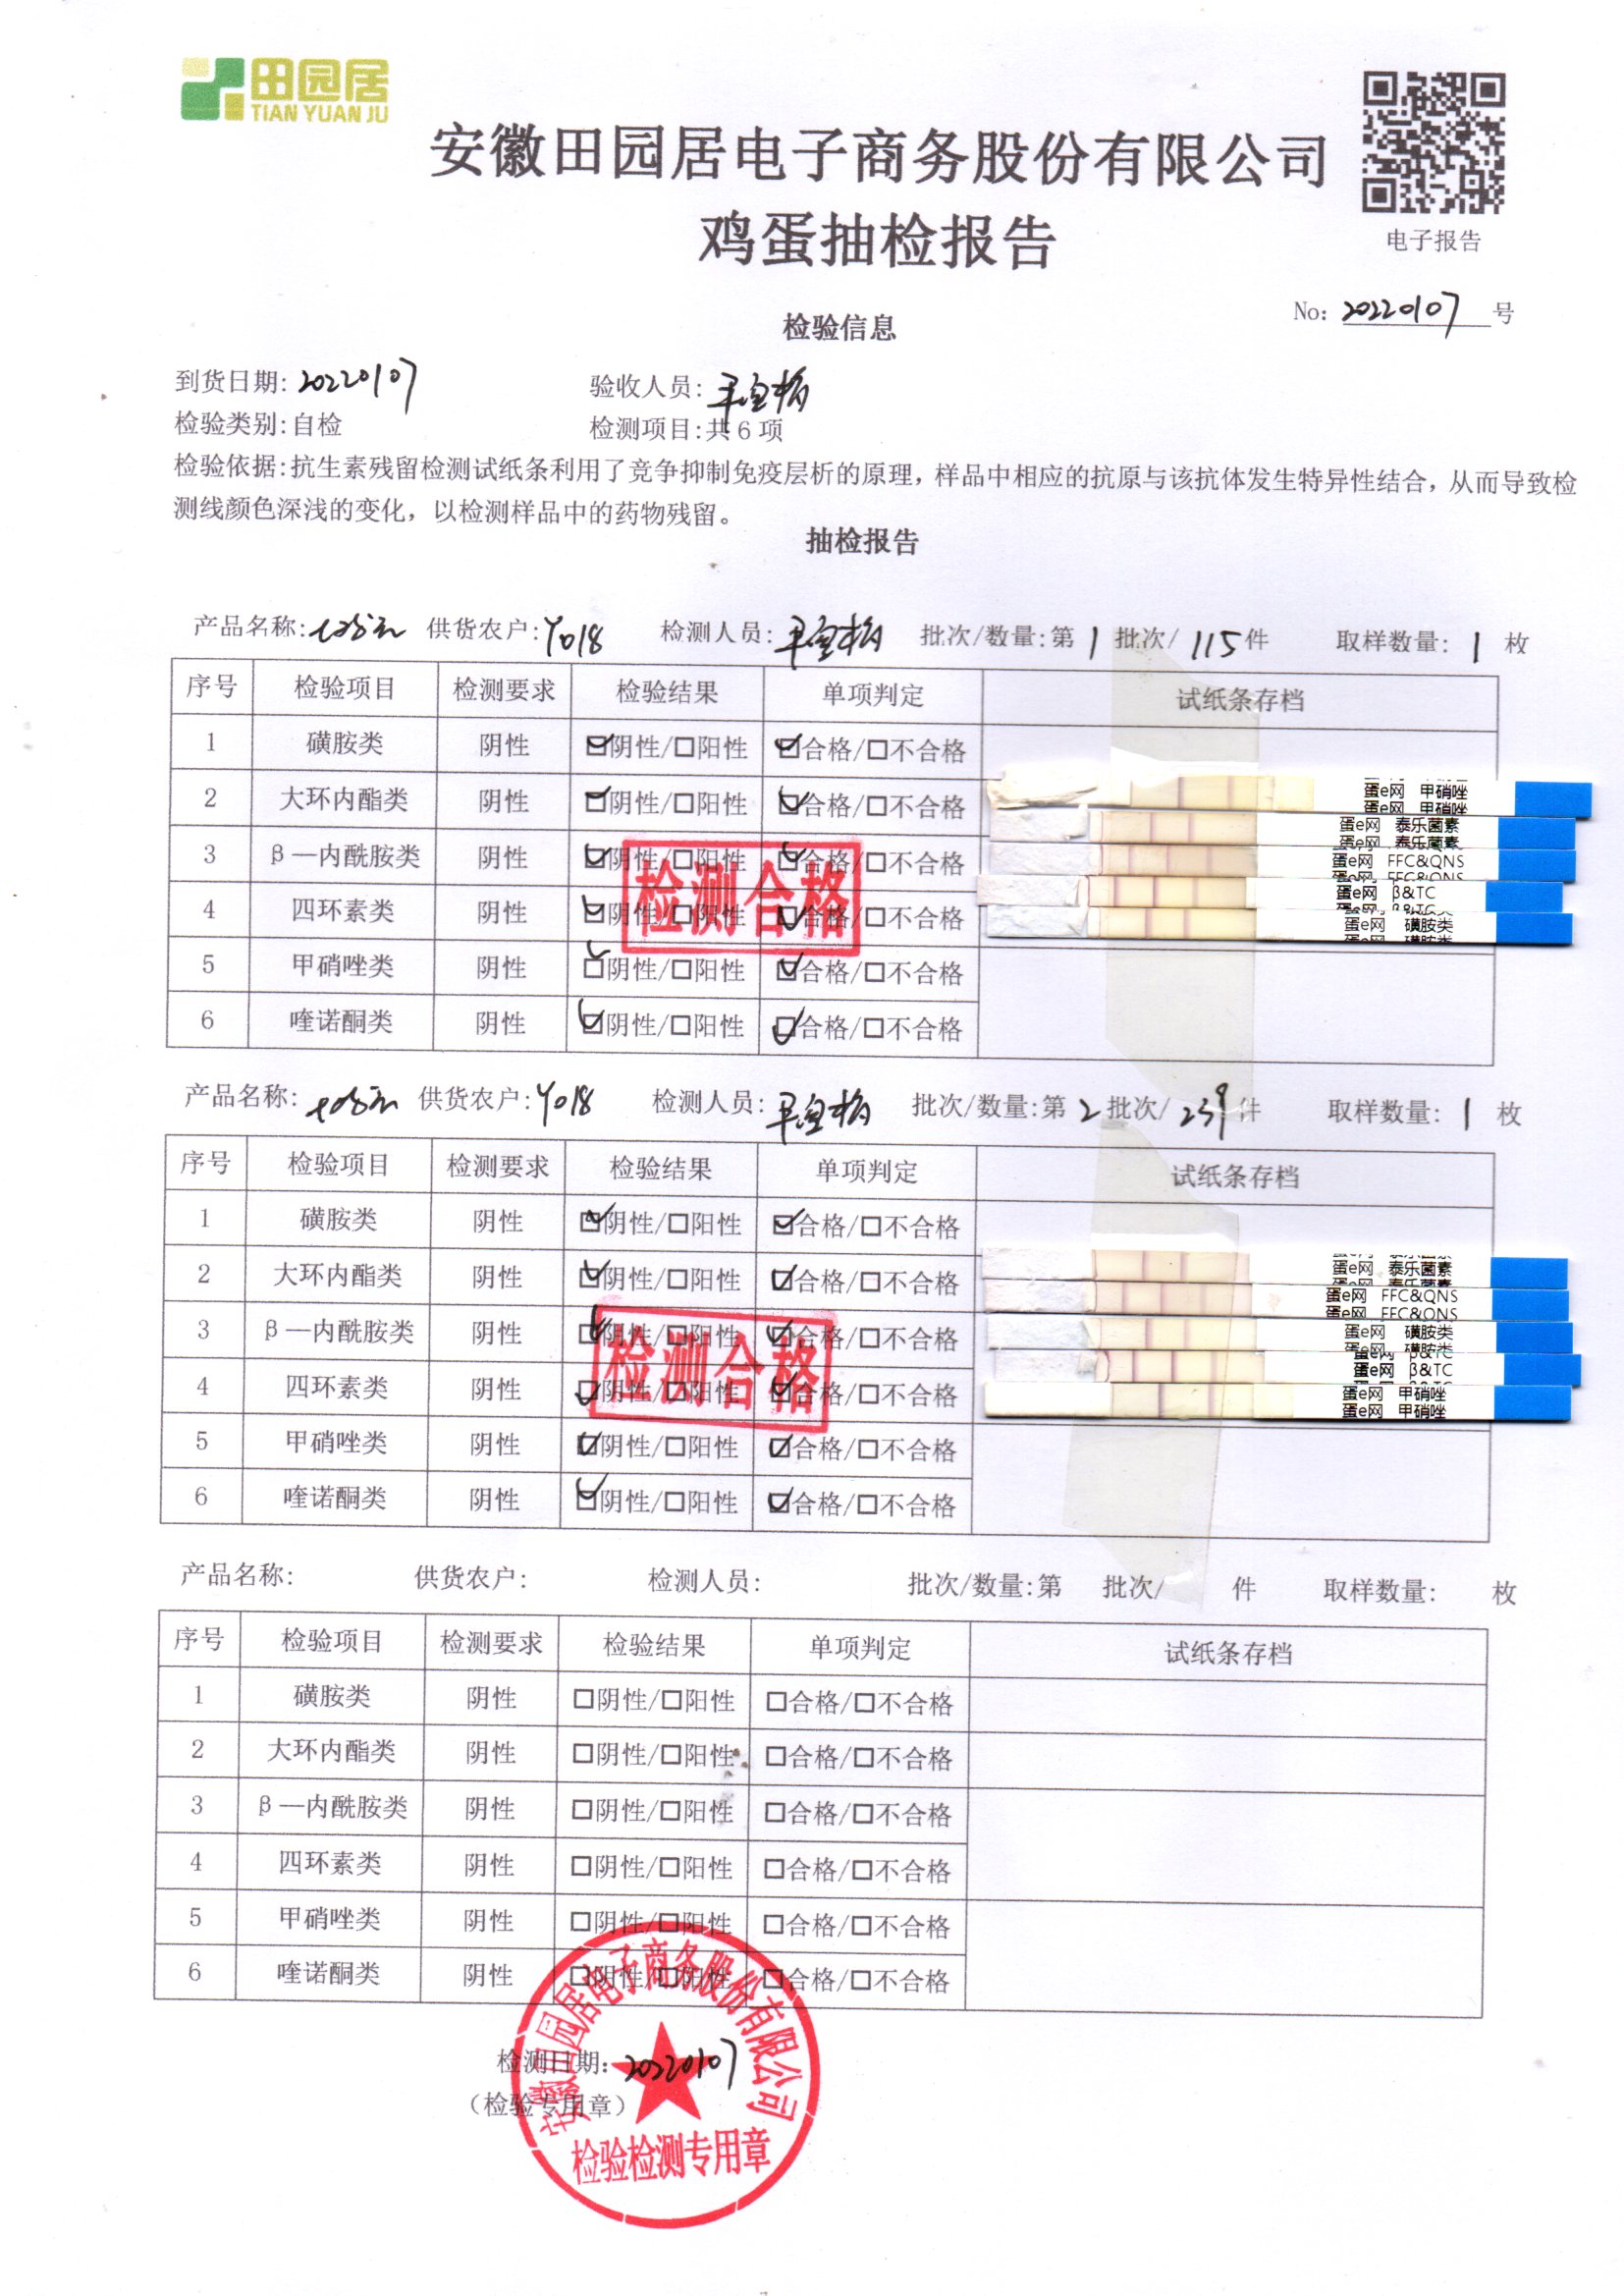 田园居
TIAN YUAN JU
安徽田园居电子商务股份有限公司
鸡蛋抽检报告
电子报告
No: 20220107 号
检验信息
到货日期: 20220107 验收人员:
检验类别:自检 检测项目:共6项
检验依据:抗生素残留检测试纸条利用了竞争抑制免疫层析的原理，样品中相应的抗原与该抗体发生特异性结合，从而导致检
测线颜色深浅的变化，以检测样品中的药物残留。
抽检报告
产品名称: 供货农户:Y018 检测人员: 批次/数量:第 1 批次/ 115 件 取样数量: 1 枚
序号 检验项目 检测要求 检验结果 单项判定 试纸条存档
1 磺胺类 阴性 ☑阴性/□阳性 ☑合格/□不合格
2 大环内酯类 阴性 ☑阴性/□阳性 ☑合格/□不合格
3 β—内酰胺类 阴性 ☑阴性/□阳性 ☑合格/□不合格
4 四环素类 阴性 ☑阴性/□阳性 ☑合格/□不合格
5 甲硝唑类 阴性 ☑阴性/□阳性 ☑合格/□不合格
6 喹诺酮类 阴性 ☑阴性/□阳性 ☑合格/□不合格
检测合格
蛋e网 甲硝唑
蛋e网 甲硝唑
蛋e网 泰乐菌素
蛋e网 泰乐菌素
蛋e网 FFC&QNS
蛋e网 FFC&QNS
蛋e网 β&TC
蛋e网 β&TC
蛋e网 磺胺类
蛋e网 磺胺类
产品名称: 供货农户:Y018 检测人员: 批次/数量:第 2 批次/ 239 件 取样数量: 1 枚
序号 检验项目 检测要求 检验结果 单项判定 试纸条存档
1 磺胺类 阴性 ☑阴性/□阳性 ☑合格/□不合格
2 大环内酯类 阴性 ☑阴性/□阳性 ☑合格/□不合格
3 β—内酰胺类 阴性 ☑阴性/□阳性 ☑合格/□不合格
4 四环素类 阴性 ☑阴性/□阳性 ☑合格/□不合格
5 甲硝唑类 阴性 ☑阴性/□阳性 ☑合格/□不合格
6 喹诺酮类 阴性 ☑阴性/□阳性 ☑合格/□不合格
检测合格
蛋e网 泰乐菌素
蛋e网 泰乐菌素
蛋e网 泰乐菌素
蛋e网 FFC&QNS
蛋e网 FFC&QNS
蛋e网 磺胺类
蛋e网 磺胺类
蛋e网 β&TC
蛋e网 β&TC
蛋e网 甲硝唑
蛋e网 甲硝唑
产品名称: 供货农户: 检测人员: 批次/数量:第 批次/ 件 取样数量: 枚
序号 检验项目 检测要求 检验结果 单项判定 试纸条存档
1 磺胺类 阴性 □阴性/□阳性 □合格/□不合格
2 大环内酯类 阴性 □阴性/□阳性 □合格/□不合格
3 β—内酰胺类 阴性 □阴性/□阳性 □合格/□不合格
4 四环素类 阴性 □阴性/□阳性 □合格/□不合格
5 甲硝唑类 阴性 □阴性/□阳性 □合格/□不合格
6 喹诺酮类 阴性 □阴性/□阳性 □合格/□不合格
检测日期: 20220107
（检验专用章）
安徽田园居电子商务股份有限公司
检验检测专用章